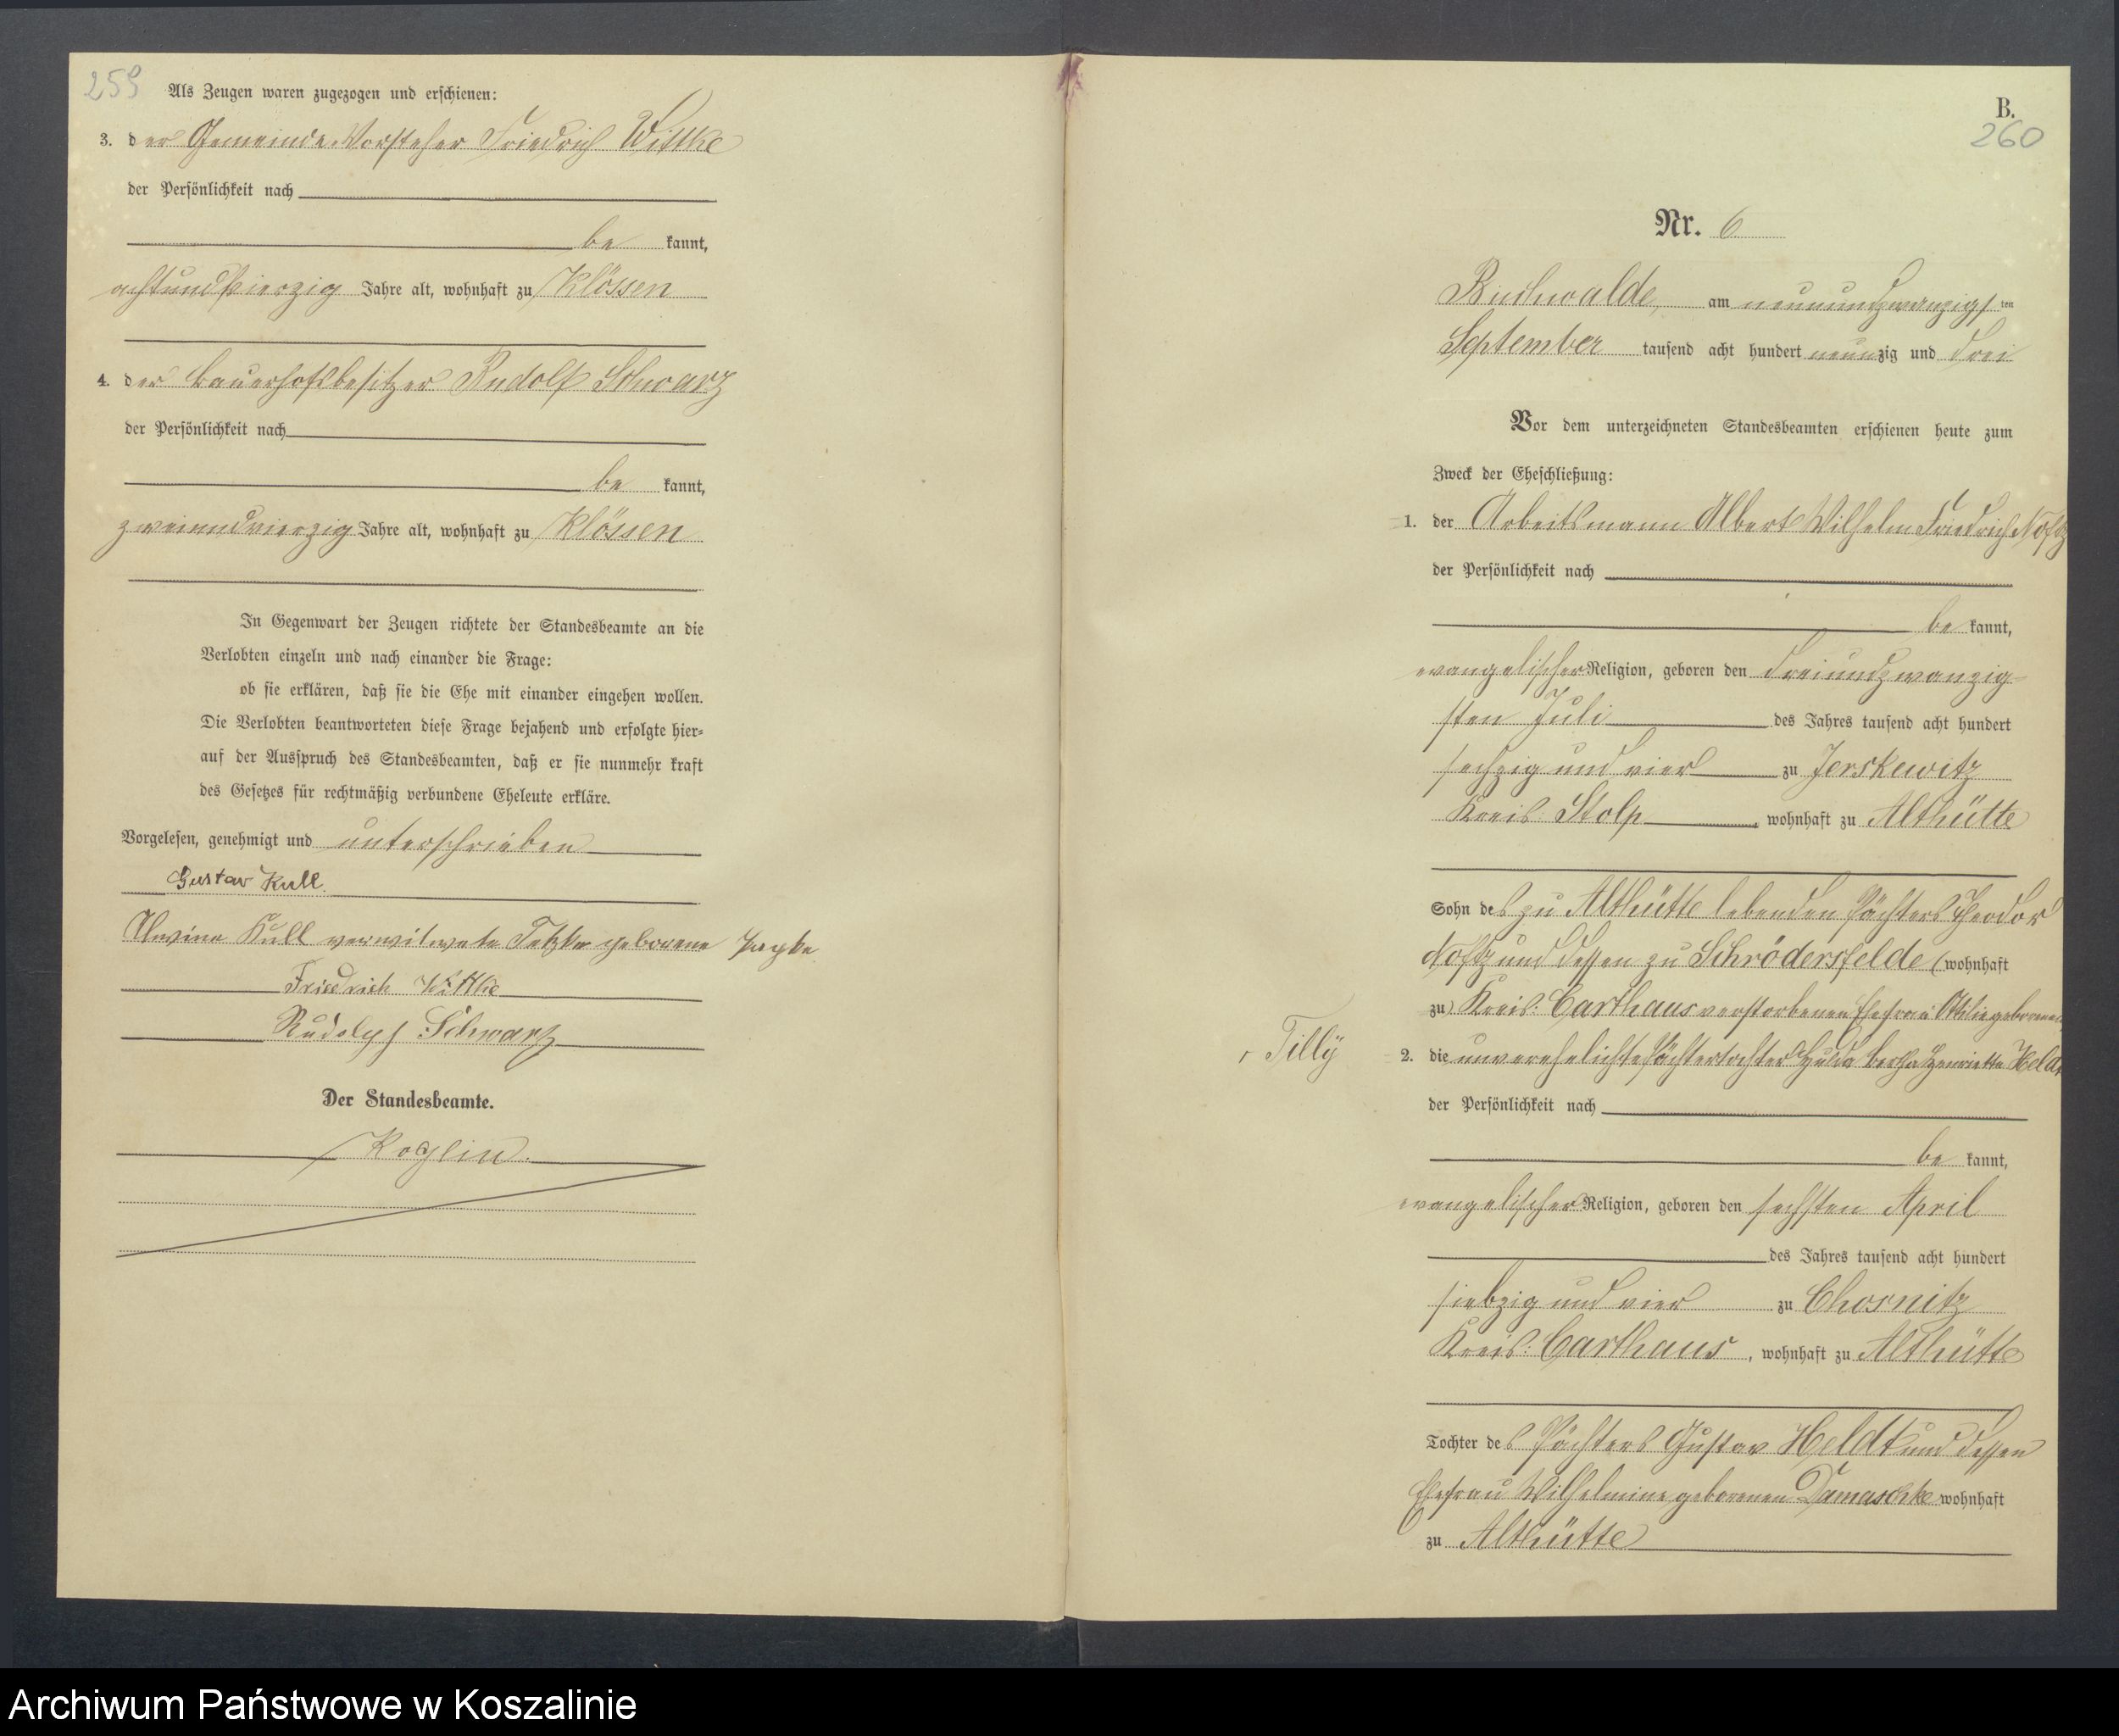 259
Als Zeugen waren zugezogen und erschienen:
3. der Gemeinde-Vorsteher Friedrich Wittke
der Persönlichkeit nach
be kannt,
achtundvierzig Jahre alt, wohnhaft zu Klössen
4. der Bauerhofsbesitzer Rudolf Schwarz
der Persönlichkeit nach
be kannt,
zweiundvierzig Jahre alt, wohnhaft zu Klössen
In Gegenwart der Zeugen richtete der Standesbeamte an die
Verlobten einzeln und nach einander die Frage:
ob sie erklären, daß sie die Ehe mit einander eingehen wollen.
Die Verlobten beantworteten diese Frage bejahend und erfolgte hier-
auf der Ausspruch des Standesbeamten, daß er sie nunmehr kraft
des Gesetzes für rechtmäßig verbundene Eheleute erkläre.
Vorgelesen, genehmigt und unterschrieben
Gustav Kull.
Alwine Kull verwitwete Tetzke geborene
Friedrich Wittke
Rudolph Schwarz
Der Standesbeamte.
Koglin.
B.
260
Nr. 6
Buchwalde, am neunundzwanzigs ten
September tausend acht hundert neunzig und drei
Vor dem unterzeichneten Standesbeamten erschienen heute zum
Zweck der Eheschließung:
1. der Arbeitsmann Albert Wilhelm Friedrich Noffz
der Persönlichkeit nach
be kannt,
evangelischer Religion, geboren den dreiundzwanzig-
sten Juli des Jahres tausend acht hundert
sechzig und vier zu Jerskewitz
Kreis Stolp, wohnhaft zu Althütte
Sohn des zu Althütte lebenden Pächters Theodor
Noffz und dessen zu Schrödersfelde (wohnhaft
zu) Kreis: Carthaus verstorbenen Ehefrau geborenen
Tilly
2. die unverehelichte Pächtertochter Hulda Bertha Henriette Heldt
der Persönlichkeit nach
be kannt,
evangelischer Religion, geboren den sechsten April
des Jahres tausend acht hundert
siebzig und vier zu Chosnitz
Kreis: Carthaus, wohnhaft zu Althütte
Tochter des Pächters Gustav Heldt und dessen
Ehefrau Wilhelmine geborenen Damaschke wohnhaft
zu Althütte
Archiwum Państwowe w Koszalinie